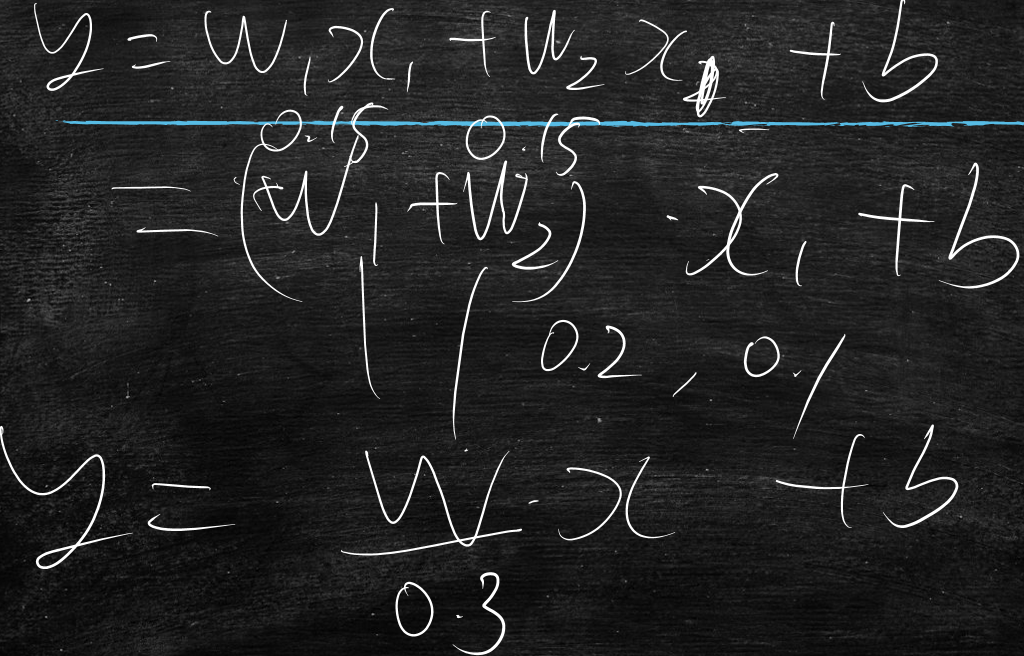 y = w₁x₁ + w₂x₂ + b
0.15 0.15
= (w₁ + w₂) · x₁ + b
0.2, 0.1
y = w · x + b
0.3